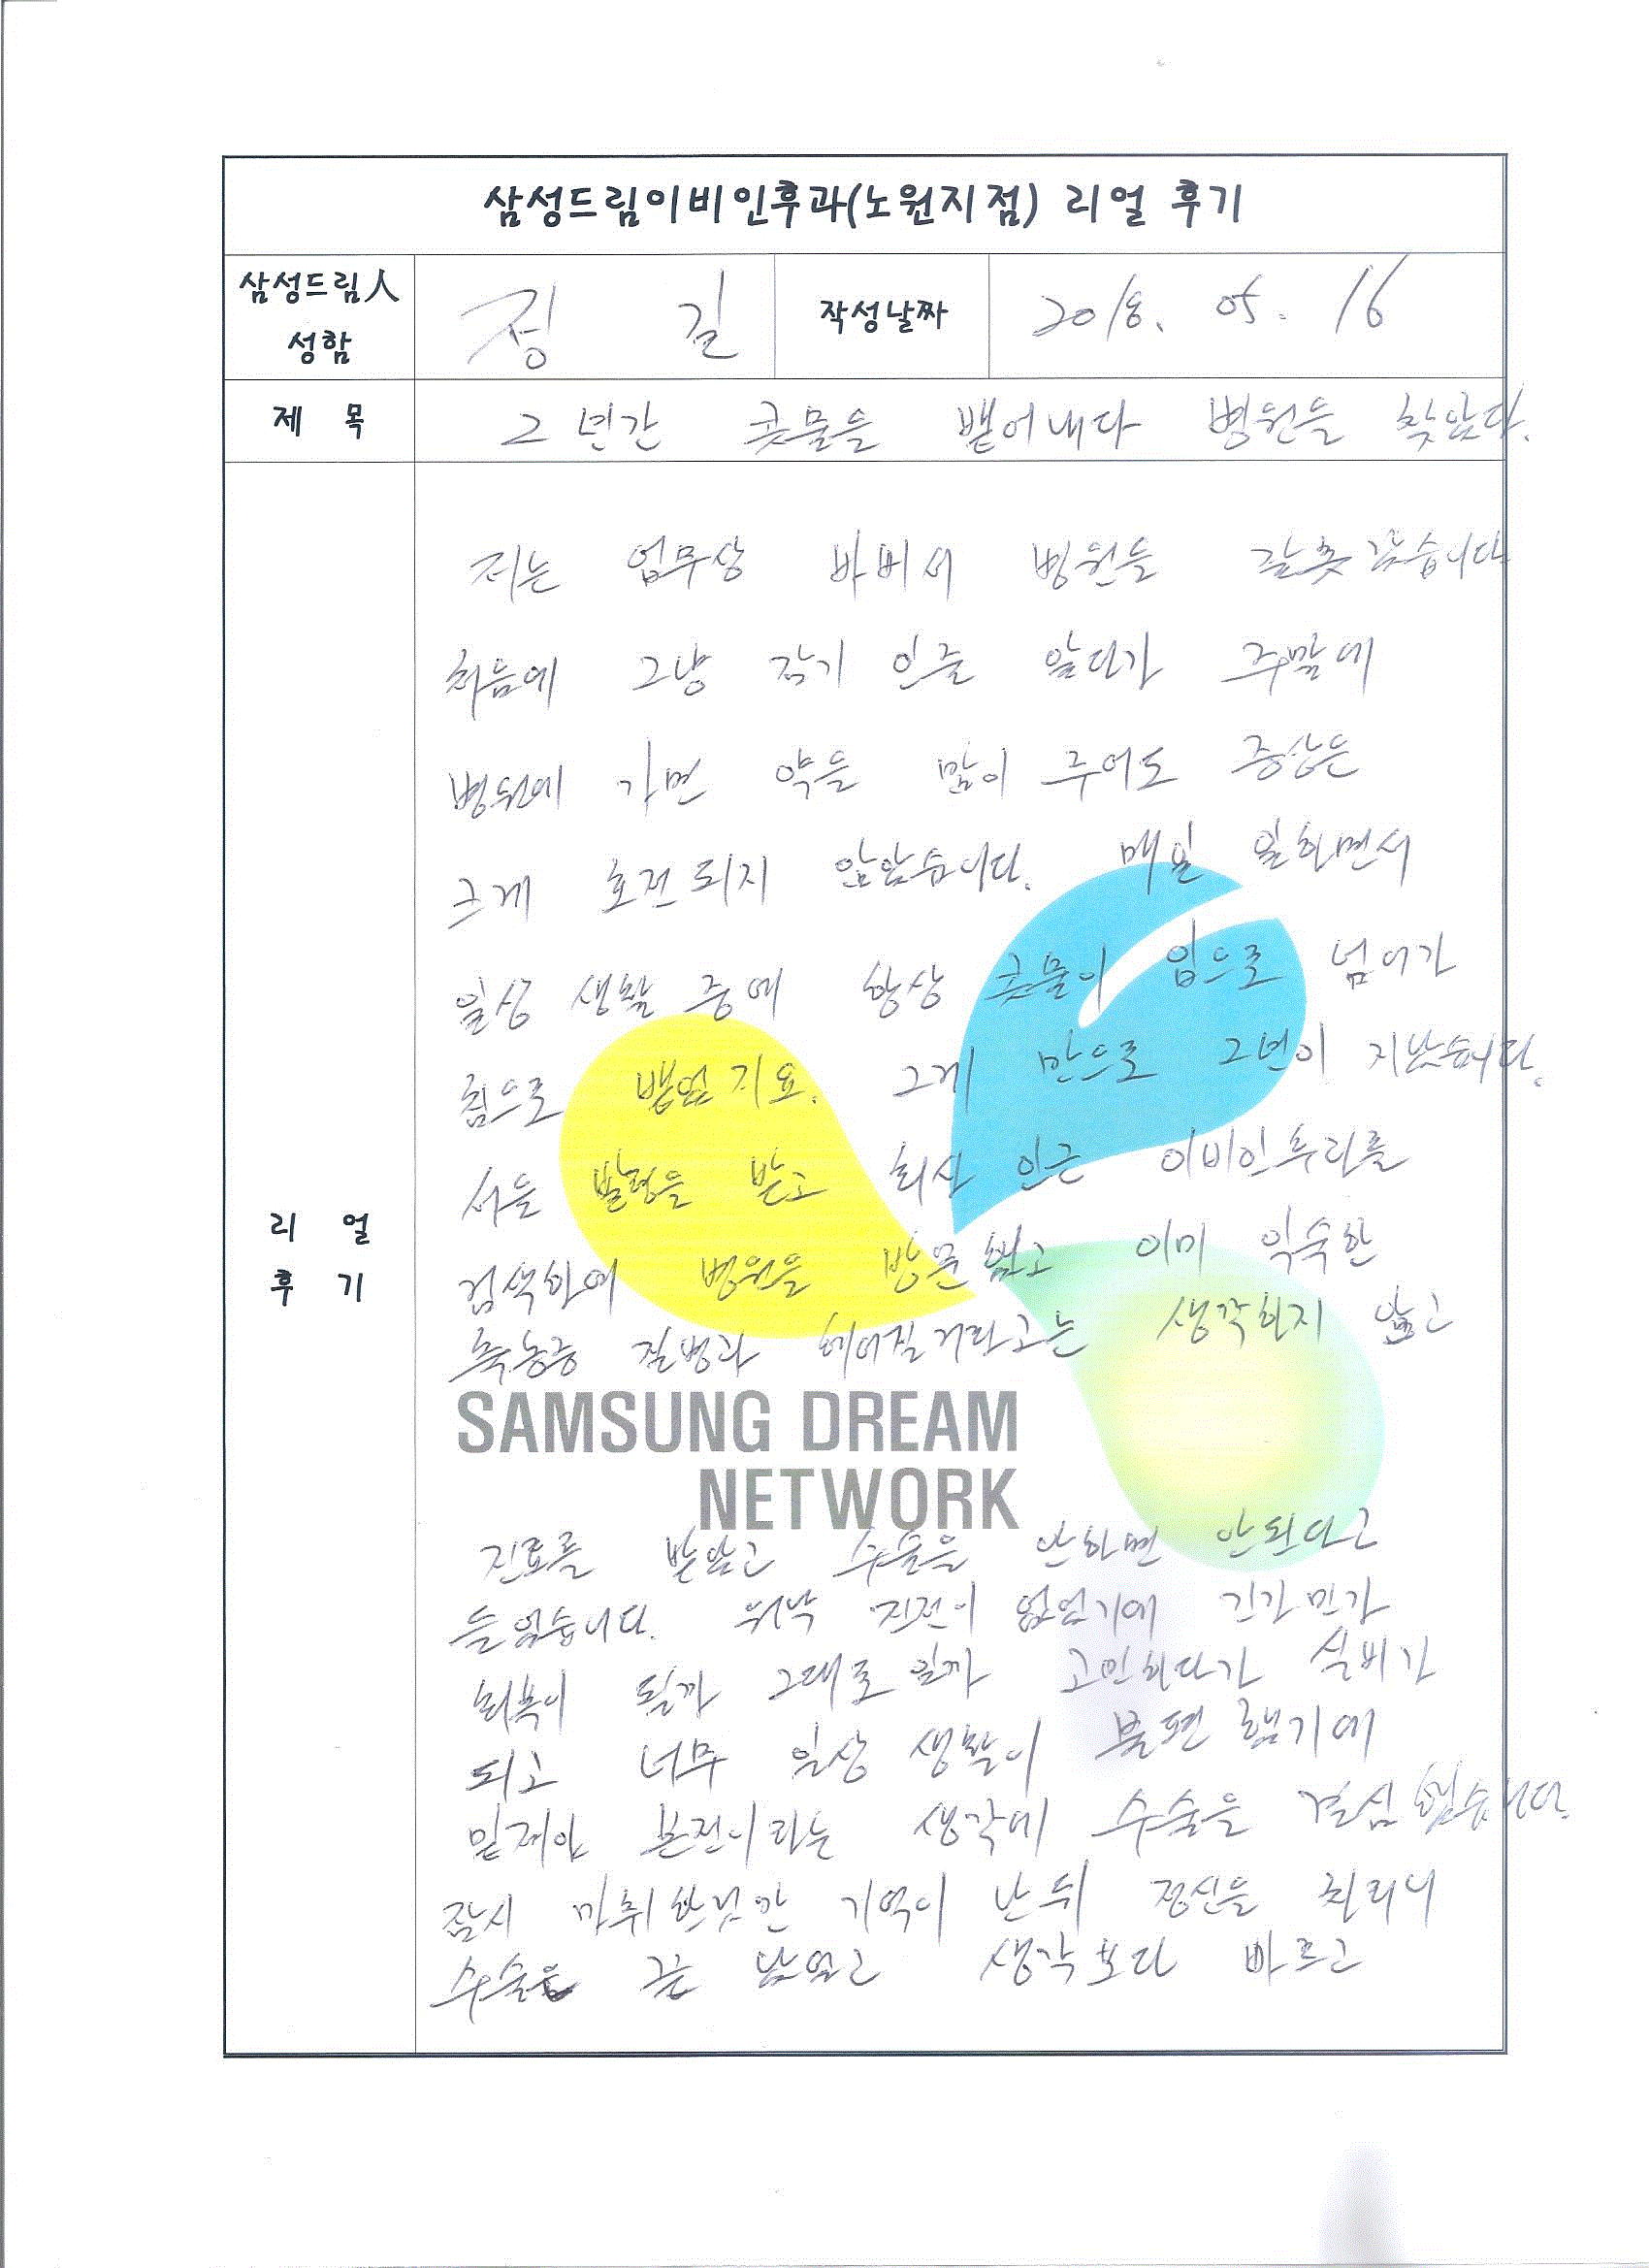 삼성드림이비인후과(노원지점) 리얼 후기
삼성드림人
성함
정 길
작성날짜
2018. 05. 16
제 목
2년간 콧물을 뱉어내다 병원을 찾았다.
저는 업무상 바버서 병원을 잘못갔습니다
처음에 그냥 감기 인줄 알다가 주말에
병원에 가면 약을 많이 주어도 증상은
크게 호전되지 않았습니다. 매일 일하면서
일상 생활 중에 항상 콧물이 입으로 넘어가
침으로 뱉었지요. 그게 만으로 2년이 지났습니다.
서울 발령을 받고 회사 인근 이비인후과를
검색하여 병원을 방문했고 이미 익숙한
축농증 질병과 헤어질거라고는 생각하지 않고
SAMSUNG DREAM
NETWORK
진료를 받았고 수술을 안하면 안된다고
들었습니다. 워낙 진전이 없었기에 긴가민가
회복이 될까 그대로일까 고민하다가 실비가
되고 너무 일상 생활이 불편했기에
밑져야 본전이라는 생각에 수술을 결심했습니다.
잠시 마취 기억이 난뒤 정신을 차리니
수술을 끝 났었고 생각보다 빠르고
리 얼
후 기